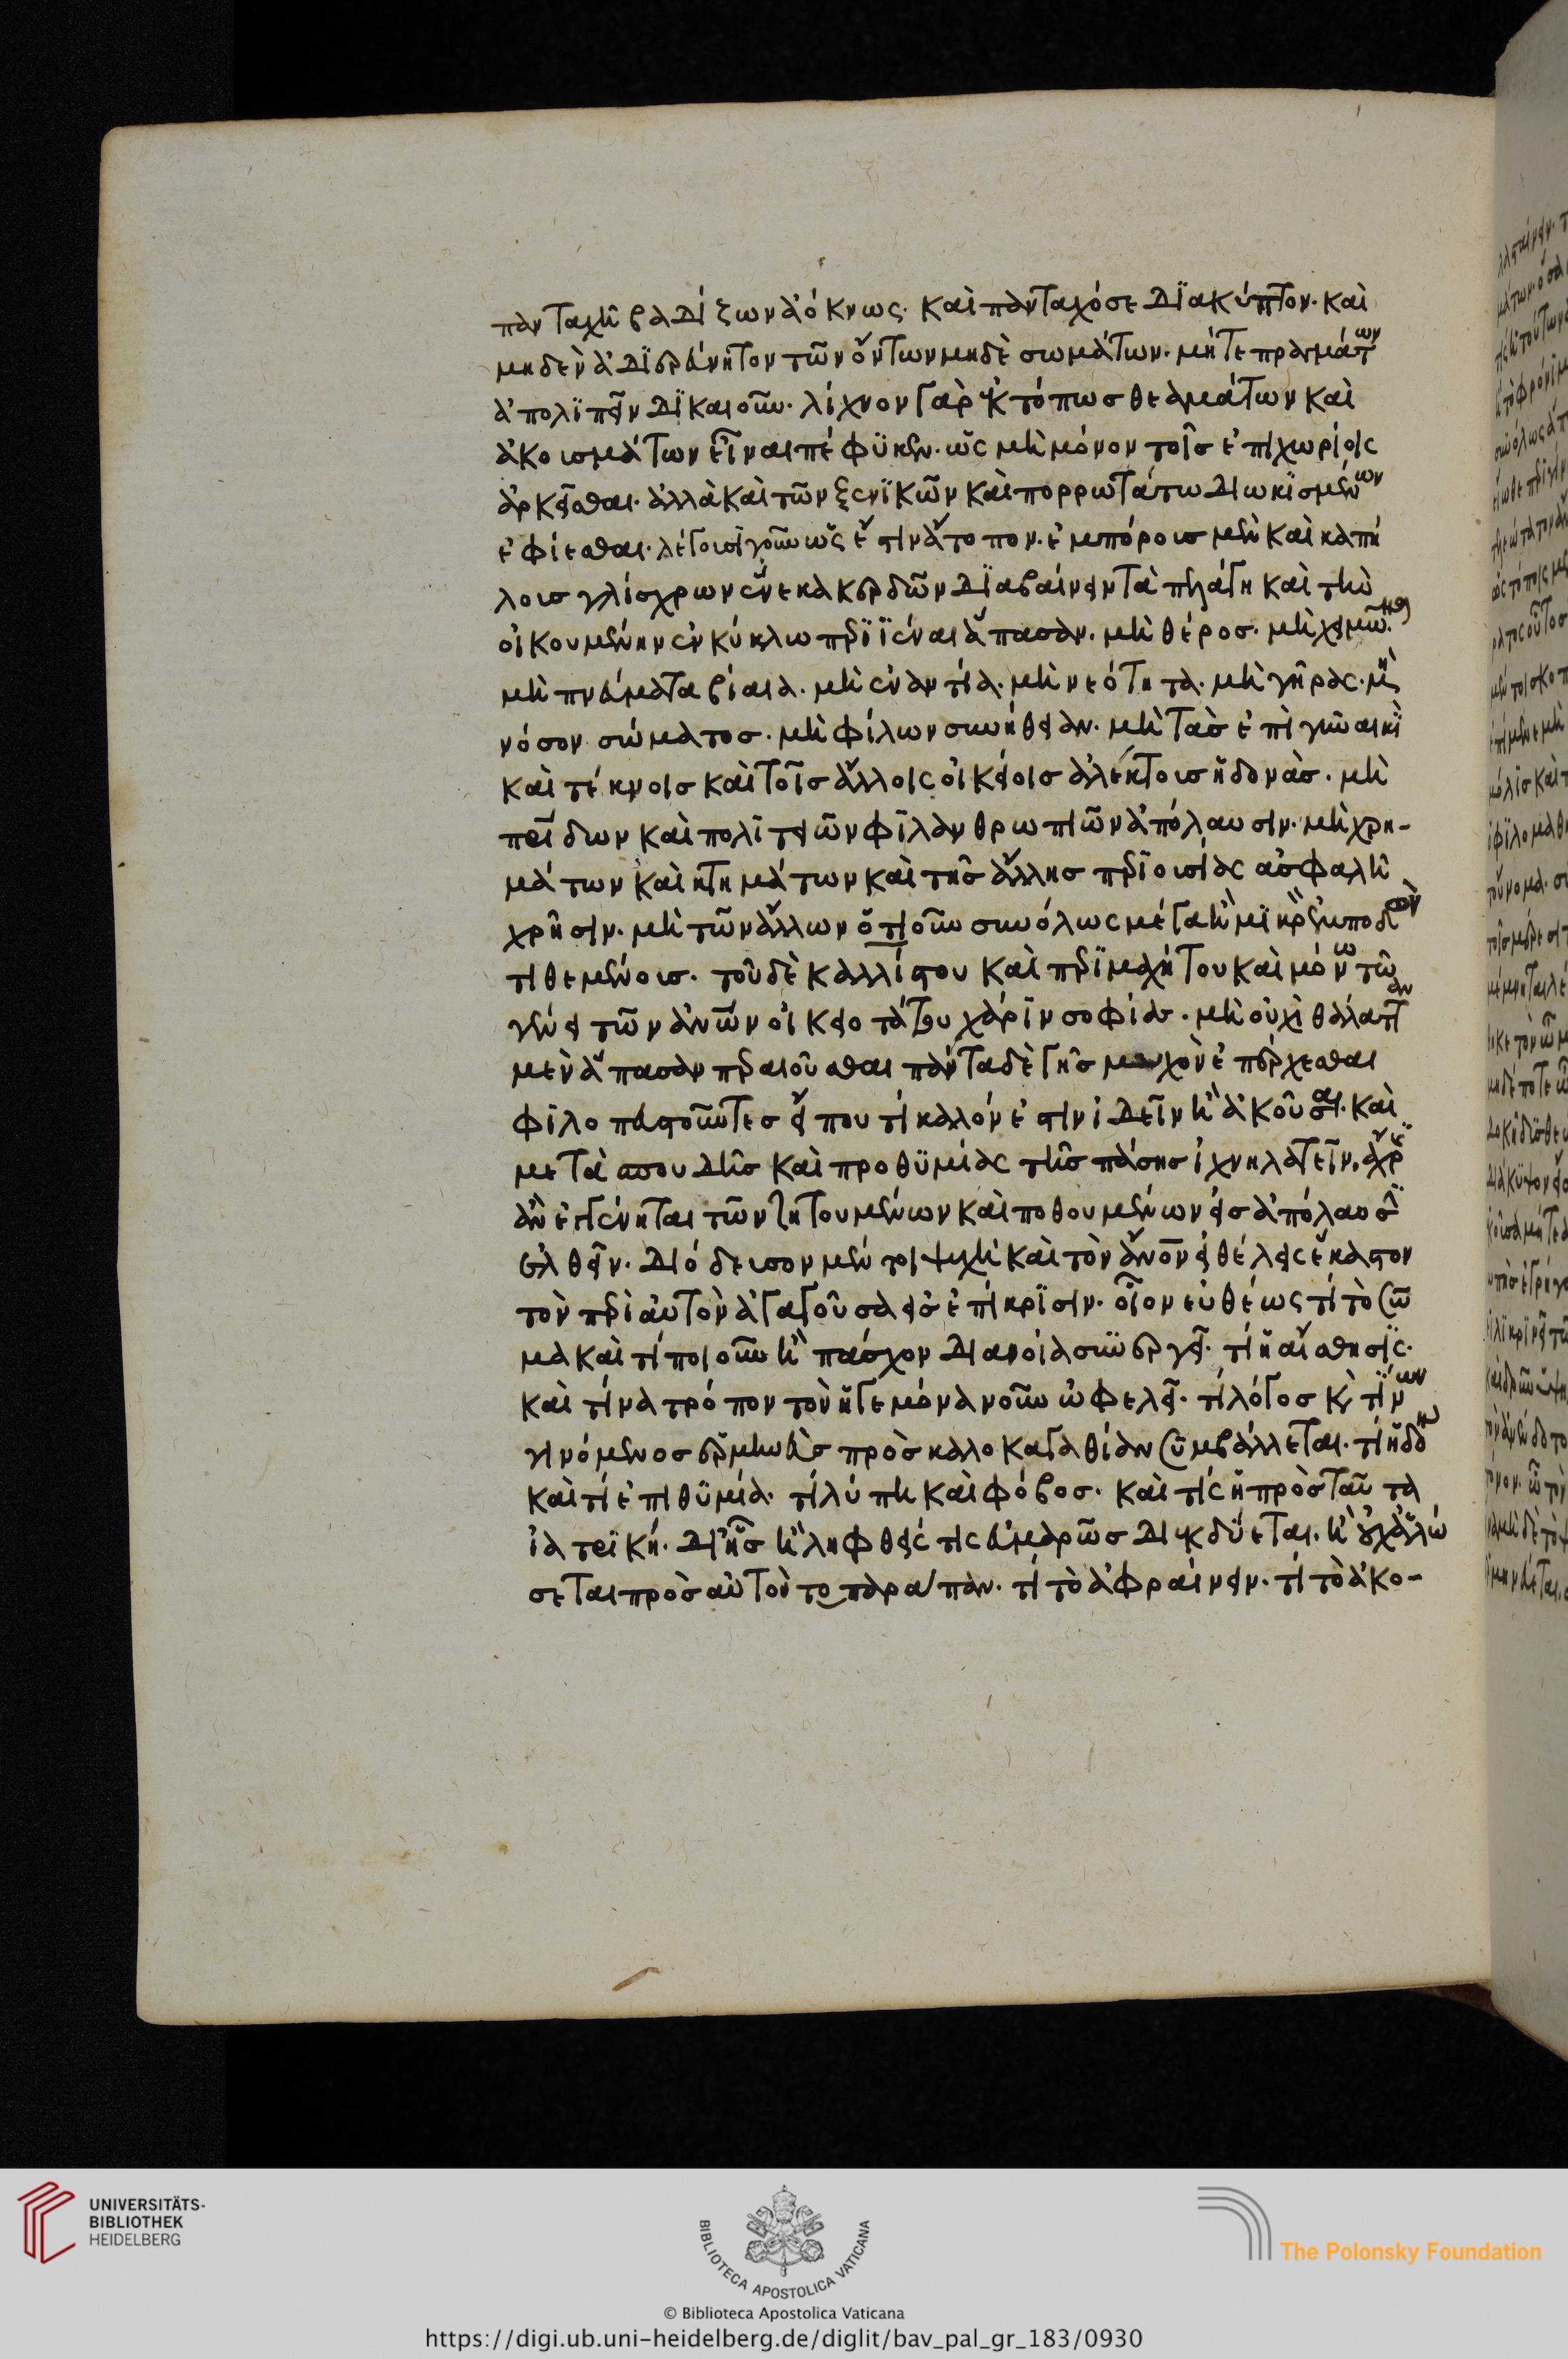 πανταχῆ βαδίζων ἀόκνως. καὶ πανταχόσε διακύπτον. καὶ
μηδὲν ἀδιερεύνητον τῶν ὄντων μηδὲ σωμάτων. μήτε πραγμάτων
ἀπολιπεῖν δικαιοῦν. λίχνον γὰρ ἐκτόπως θεαμάτων καὶ
ἀκουσμάτων εἶναι πέφυκεν. ὡς μὴ μόνον τοῖς ἐπιχωρίοις
ἀρκεῖσθαι. ἀλλὰ καὶ τῶν ξενικῶν καὶ πορρωτάτω διωκισμένων
ἐφίεσθαι. λέγουσι γοῦν ὡς ἔστιν ἄτοπον. ἐμπόρους μὲν καὶ καπή
λους γλίσχρων ἕνεκα κερδῶν διαβαίνειν τὰ πελάγη καὶ τὴν
οἰκουμένην ἐν κύκλω περιϊέναι ἅπασαν. μὴ θέρος. μὴ χειμῶνα.
μὴ πνεύματα βίαια. μὴ ἐναντία. μὴ νεότητα. μὴ γῆρας. μὴ
νόσον σώματος. μὴ φίλων συνήθειαν. μὴ τὰς ἐπὶ γυναικὶ
καὶ τέκνοις καὶ τοῖς ἄλλοις οἰκείοις ἀλέκτους ἡδονὰς. μὴ
πατρίδων καὶ πολιτειῶν φιλανθρωπιῶν ἀπόλαυσιν. μὴ χρη-
μάτων καὶ κτημάτων καὶ τῆς ἄλλης περιουσίας ἀσφαλῆ
χρῆσιν. μὴ τῶν ἄλλων ὅτιοῦν συνόλως μέγα ἢ μικρὸν ἐμποδὼν
τιθεμένους. τοῦ δὲ καλλίστου καὶ περιμαχήτου καὶ μόνω τῶ
γένει τῶν ἀνων οἰκειοτάτου χάριν σοφίας. μὴ οὐχὶ θάλατταν
μὲν ἅπασαν περαιοῦσθαι πάντα δὲ γῆς μυχὸν ἐπέρχεσθαι
φιλοπευστοῦντες εἴ που τί καλόν ἐστιν ἰδεῖν ἢ ἀκοῦσαι. καὶ
μετὰ σπουδῆς καὶ προθυμίας τῆς πάσης ἰχνηλατεῖν, ἄχρις
ἂν ἐγγένηται τῶν ζητουμένων καὶ ποθουμένων εἰς ἀπόλαυσιν
ἐλθεῖν. διόδευσον μέντοι ψυχὴ καὶ τὸν ἄνον εἰ θέλεις ἕκαστον
τὸν περὶ αὐτὸν ἀγαγοῦσα εἰς ἐπίκρισιν. οἷον εὐθέως τί τὸ σῶ
μα καὶ τί ποιοῦν ἢ πάσχον διανοία συνεργεῖ. τί ἡ αἴσθησις.
καὶ τίνα τρόπον τὸν ἡγεμόνα νοῦν ὠφελεῖ. τί λόγος καὶ τίνων
γινόμενος ἑρμηνεὺς πρὸς καλοκαγαθίαν συμβάλλεται. τί ἡδονὴ
καὶ τί ἐπιθυμία. τί λύπη καὶ φόβος. καὶ τίς ἡ πρὸς ταῦτα
ἰατρική. δι' ἧς ἢ ληφθείς τις εὐμαρῶς διεκδύεται. ἢ οὐχ ἁλώ
σεται πρὸς αὐτὸν τοπαράπαν. τί τὸ ἀφραίνειν. τί τὸ ἀκο-
UNIVERSITÄTS-
BIBLIOTHEK
HEIDELBERG
BIBLIOTECA APOSTOLICA VATICANA
The Polonsky Foundation
© Biblioteca Apostolica Vaticana
https://digi.ub.uni-heidelberg.de/diglit/bav_pal_gr_183/0930